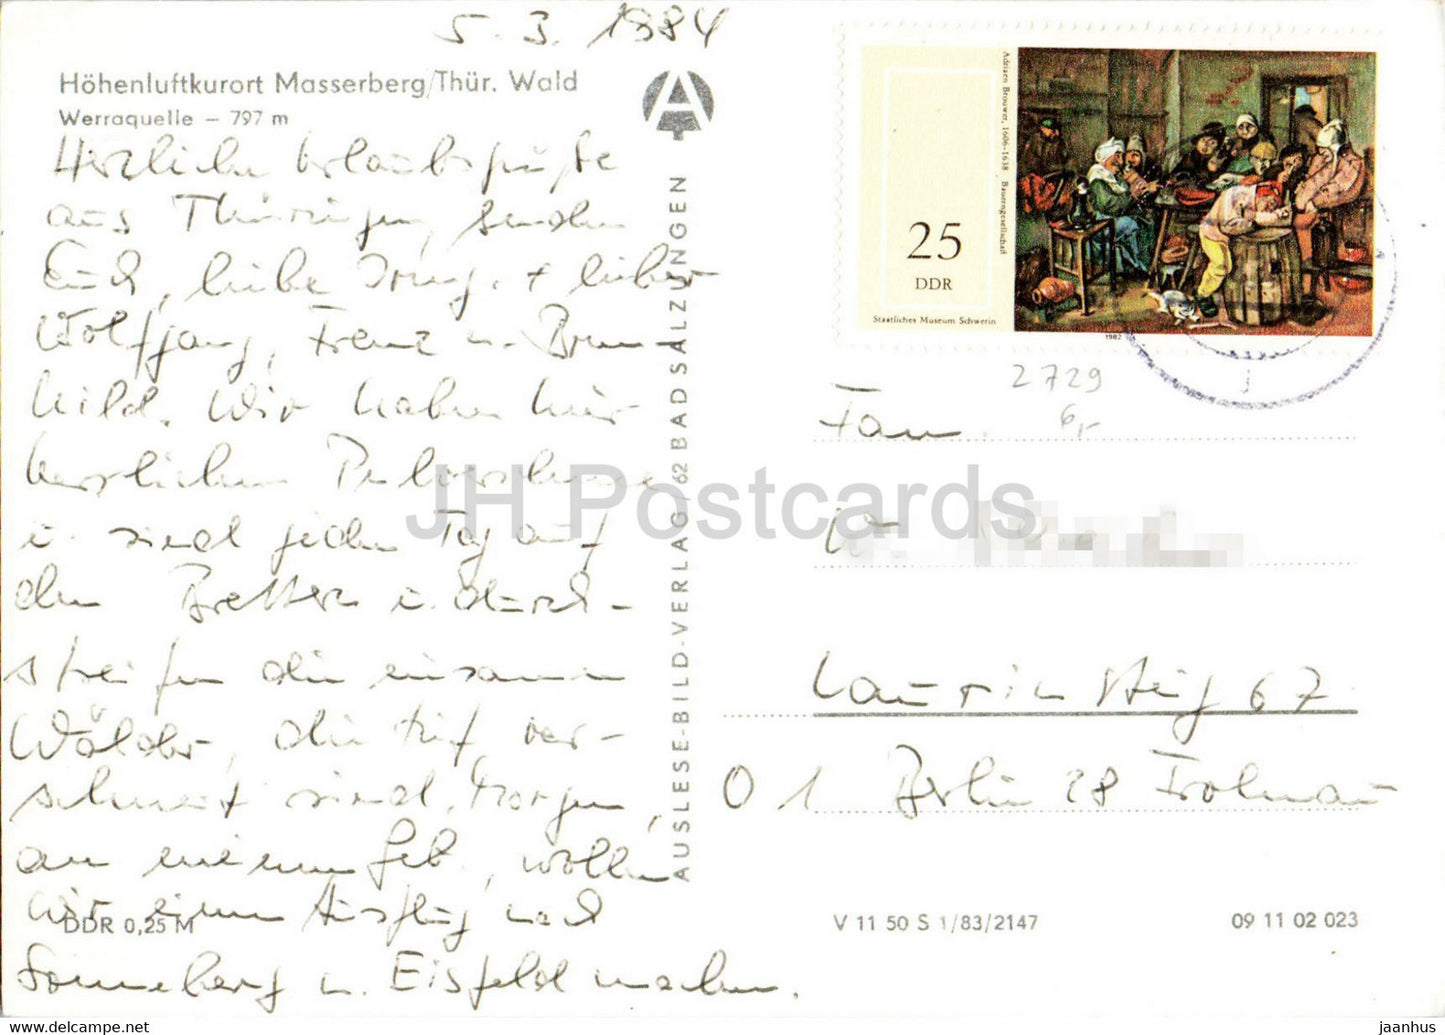 5. 3. 1984
Höhenluftkurort Masserberg/Thür. Wald
Werraquelle – 797 m
Herzliche Urlaubsgrüße
aus Thüringen, senden
Euch, liebe Irmg. + lieber
Wolfgang, Franz u. Brun-
hild. Wir haben hier
herrlichen Pulverschnee
u. sind jeden Tag auf
den Brettern u. durch-
streifen die einsamen
Wälder, die tief ver-
schneit sind. Morgen,
an meinem Geb., wollen
wir einen Ausflug nach
Sonneberg u. Eisfeld machen.
DDR 0,25 M
AUSLESE-BILD-VERLAG / 62 BAD SALZUNGEN
A
Adriaen Brouwer, 1606–1638 Bauerngesellschaft
25
DDR
Staatliches Museum Schwerin
1982
2729
6,-
Fam.
W.
Laurinsteig 67
01 Berlin 28 Frohnau
V 11 50 S 1/83/2147
09 11 02 023
JH Postcards
jaanhus
www.delcampe.net